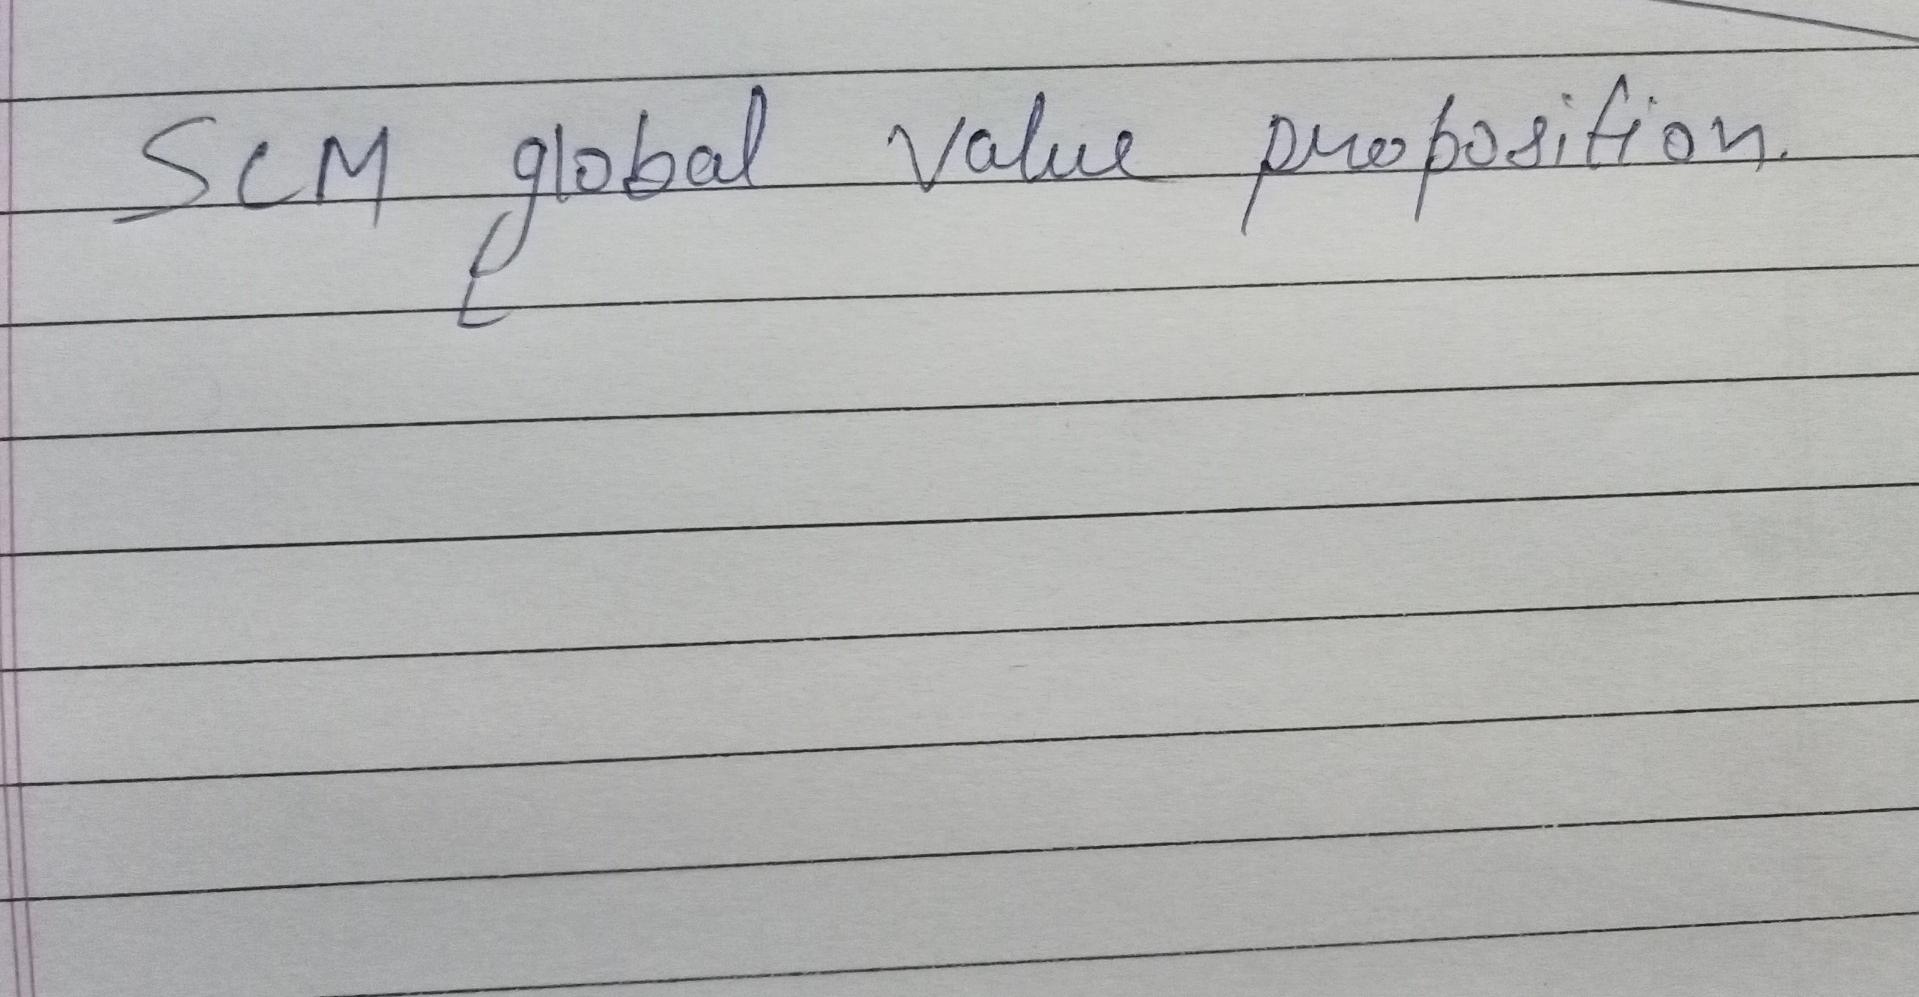 SCM global value proposition.